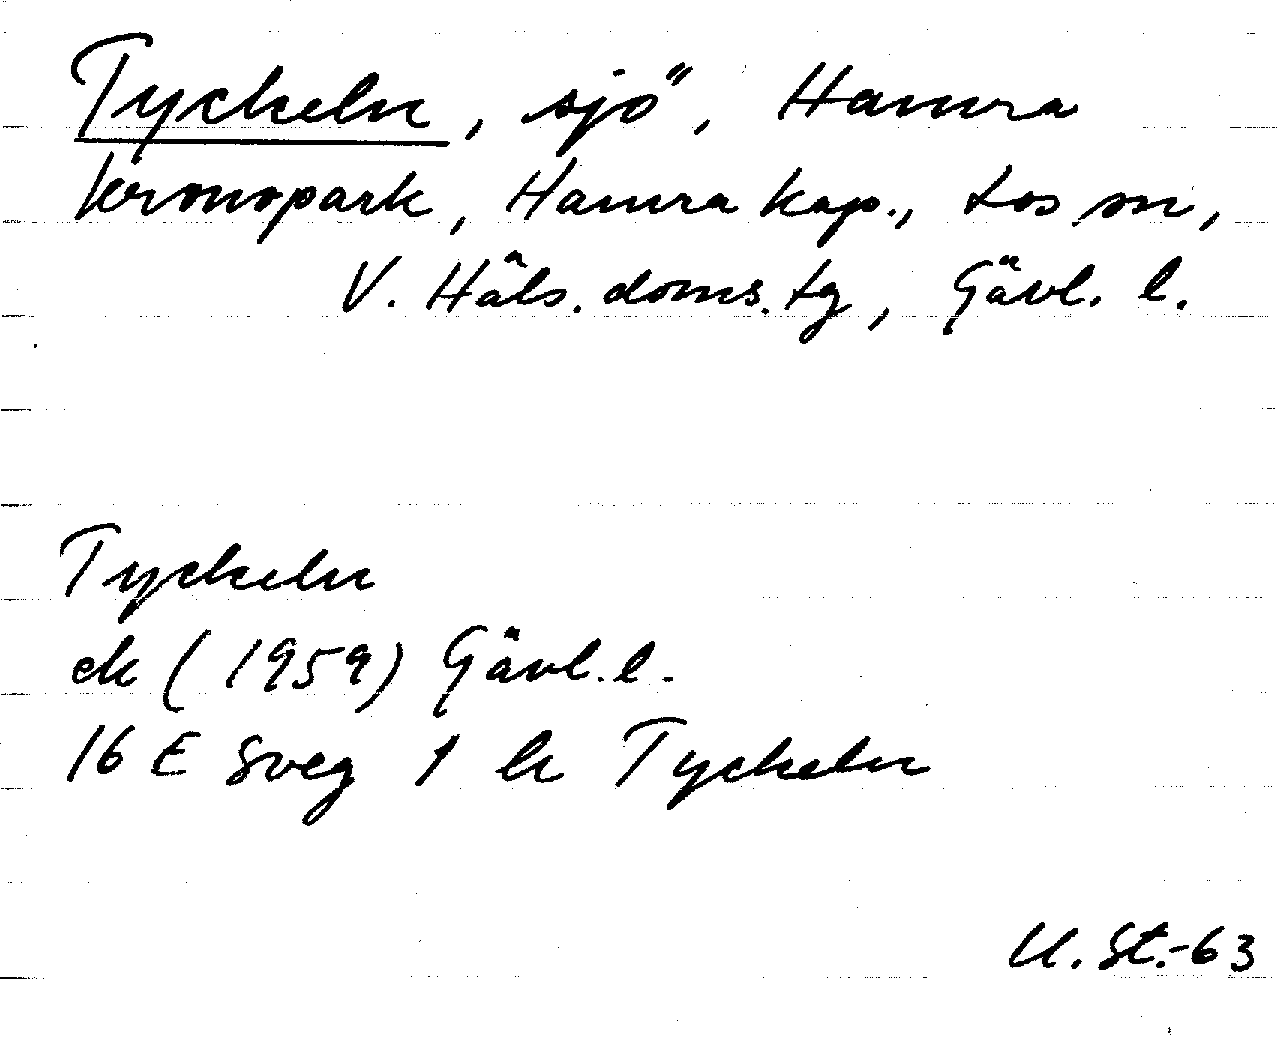 Tyckeln, sjö, Hamra
kronopark, Hamra kap., Los sn,
V. Häls. doms. tg, Gävl. l.
Tyckeln
ek (1959) Gävl. l.
16 E Sveg 1 h Tyckeln
U. St.-63